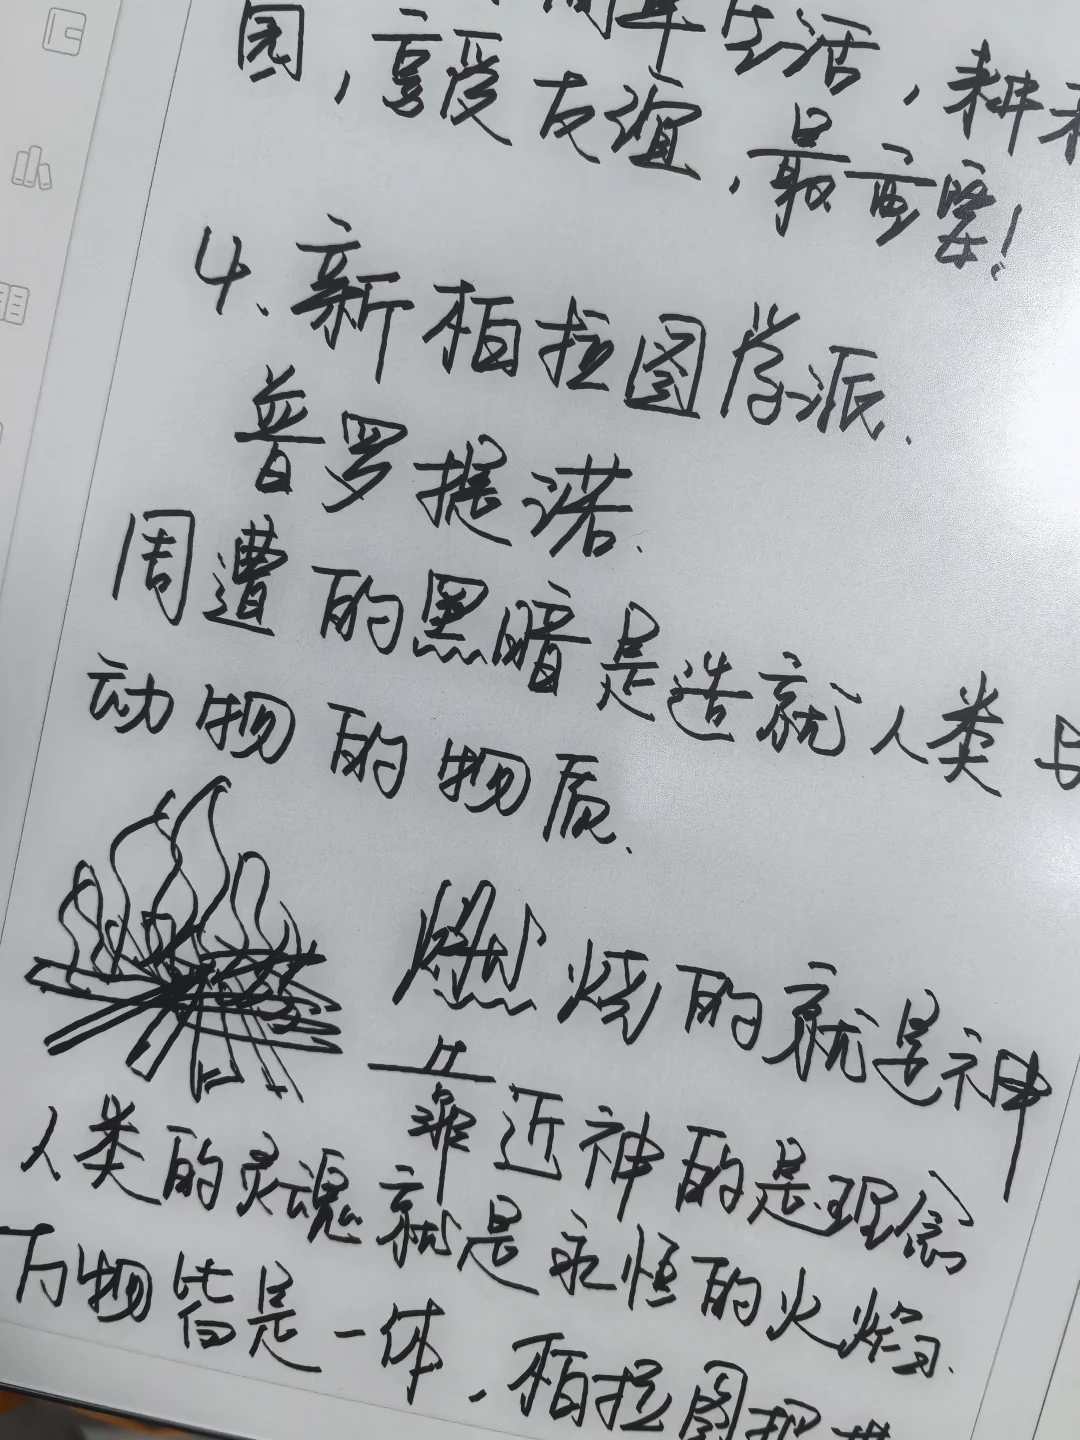 简单生活，耕
园，享受友谊，最重要！
4、新柏拉图学派.
普罗提诺.
周遭的黑暗是造就人类与
动物的物质.
燃烧的就是神
靠近神的是理念
人类的灵魂就是永恒的火焰.
万物皆是一体，柏拉图把